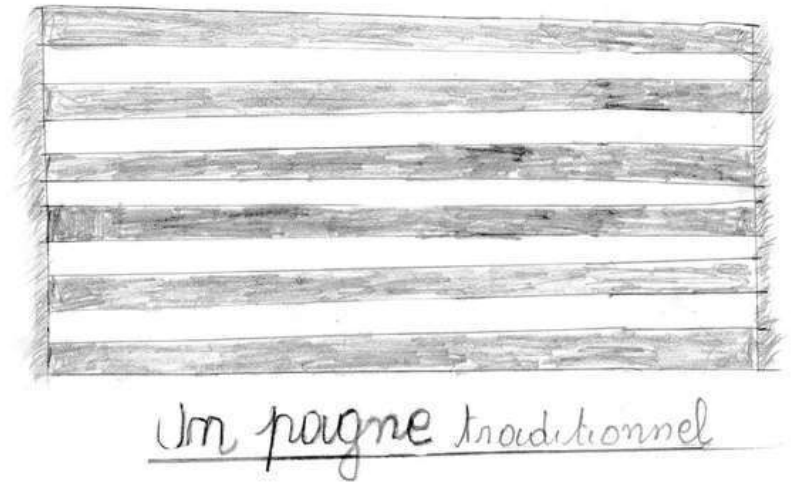 Un pagne traditionnel